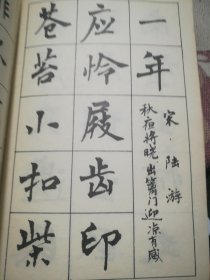 一年
宋·陆游
秋夜将晓出篱门迎凉有感
应怜屐齿印
苍苔小扣柴